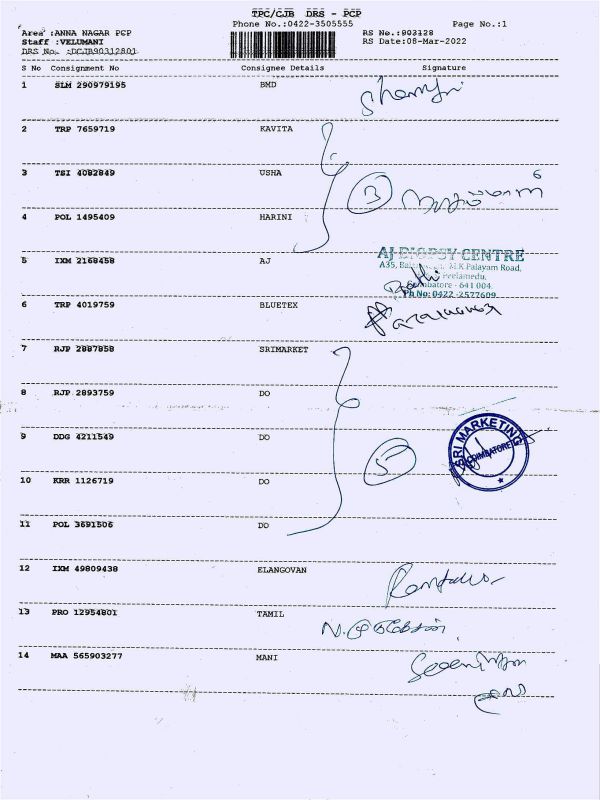 TPC/CJB DRS - PCP
Phone No.:0422-3505555 Page No.:1
Area :ANNA NAGAR PCP RS No.:903128
Staff :VELUMANI RS Date:08-Mar-2022
DRS No. :DCJB90312801
S No Consignment No Consignee Details Signature
1 SLM 290979195 BMD
2 TRP 7659719 KAVITA
3 TSI 4082849 USHA 6
3
4 POL 1495409 HARINI
5 IXM 2168458 AJ
AJ BIOPSY CENTRE
A35, M.K Palayam Road,
Peelamedu,
Coimbatore - 641 004
Ph No: 0422 -2577609
6 TRP 4019759 BLUETEX
7 RJP 2887858 SRIMARKET
8 RJP 2893759 DO
9 DDG 4211549 DO
SRI MARKETING
COIMBATORE
5
10 KRR 1126719 DO
11 POL 3691506 DO
12 IXM 49809438 ELANGOVAN
13 PRO 12954801 TAMIL
14 MAA 565903277 MANI